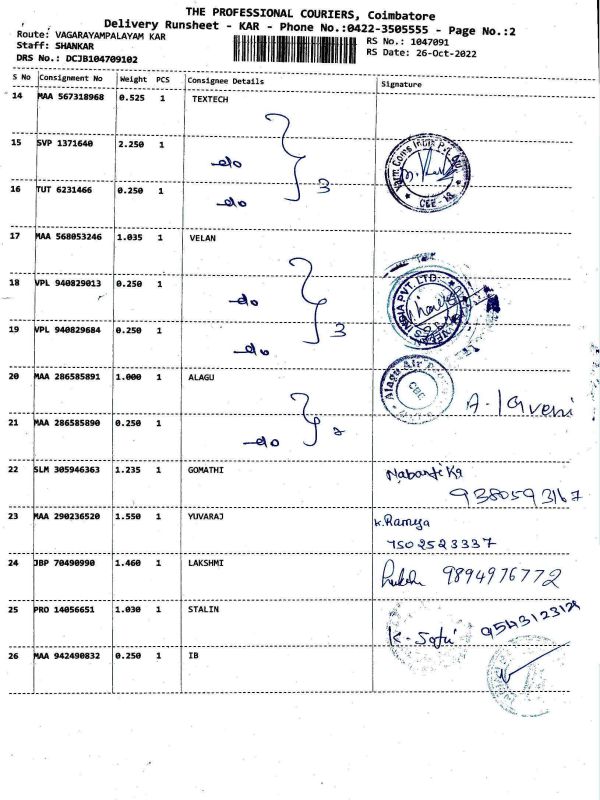 THE PROFESSIONAL COURIERS, Coimbatore
Delivery Runsheet - KAR - Phone No.:0422-3505555 - Page No.:2
Route: VAGARAYAMPALAYAM KAR
RS No.: 1047091
Staff: SHANKAR
RS Date: 26-Oct-2022
DRS No.: DCJB104709102
S No Consignment No Weight PCS Consignee Details Signature
14 MAA 567318968 0.525 1 TEXTECH
15 SVP 1371640 2.250 1 -do
16 TUT 6231466 0.250 1 -do 3
CBE - 18
17 MAA 568053246 1.035 1 VELAN
18 VPL 940829013 0.250 1 -do
INDIA PVT. LTD.
19 VPL 940829684 0.250 1 -do 3
20 MAA 286585891 1.000 1 ALAGU
Alagu Air
CBE
21 MAA 286585890 0.250 1 -do 2
22 SLM 305946363 1.235 1 GOMATHI
9380593167
23 MAA 290236520 1.550 1 YUVARAJ K. Ramya
7502523337
24 JBP 70490990 1.460 1 LAKSHMI 9894976772
25 PRO 14056651 1.030 1 STALIN
26 MAA 942490832 0.250 1 IB